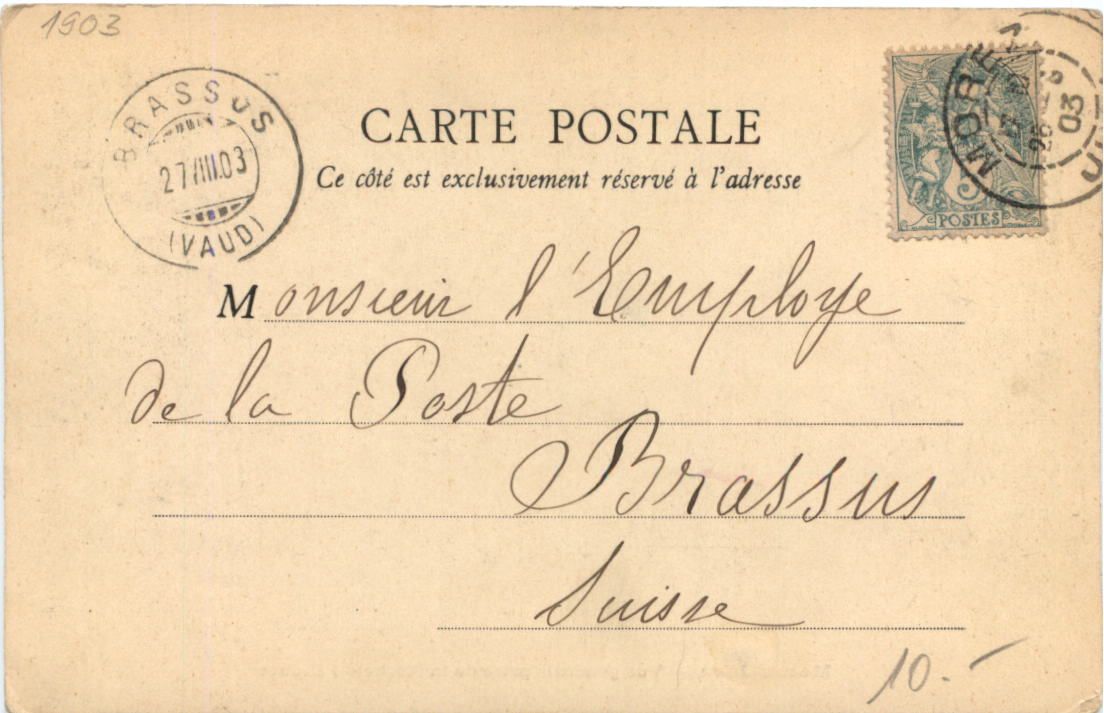 1903
BRASSUS
27 III.03
(VAUD)
CARTE POSTALE
Ce côté est exclusivement réservé à l'adresse
MORE
26
03
5
POSTES
Monsieur l'Employe
de la Poste
Brassus
Suisse
10.-